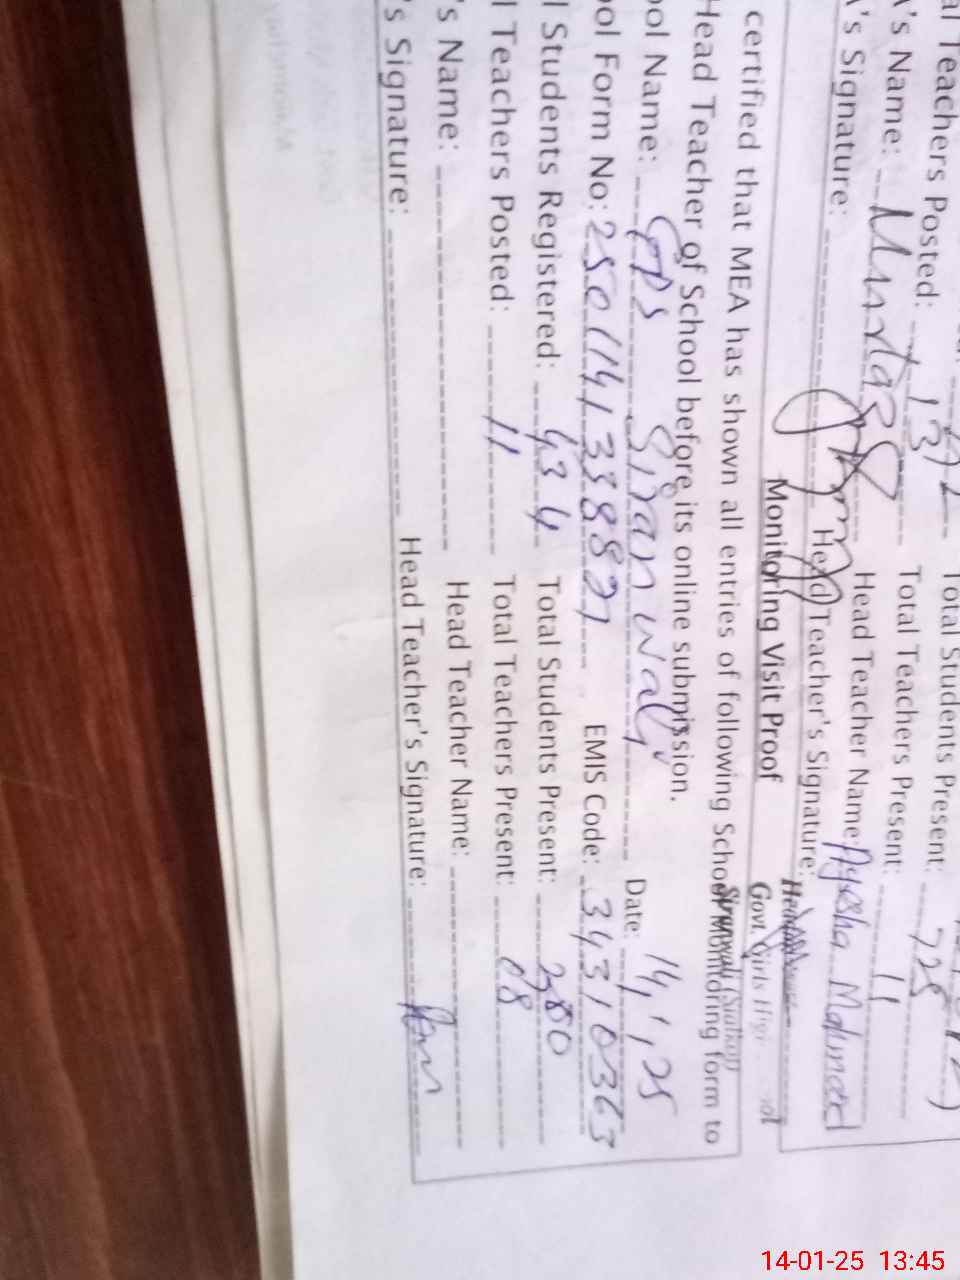 al Teachers Posted: 13 Total Students Present:
Total Teachers Present: 11
A's Name: Mumtaz Head Teacher Name: Ayesha Mahmood
A's Signature: Head Teacher's Signature:
Govt. Girls High
Monitoring Visit Proof
certified that MEA has shown all entries of following School Monitoring form to
Head Teacher of School before its online submission.
ool Name: GPS Siranwali Date: 14,1,25
ool Form No: EMIS Code: 34310363
l Students Registered: 434 Total Students Present: 380
l Teachers Posted: 11 Total Teachers Present: 08
's Name: Head Teacher Name:
's Signature: Head Teacher's Signature:
14-01-25 13:45